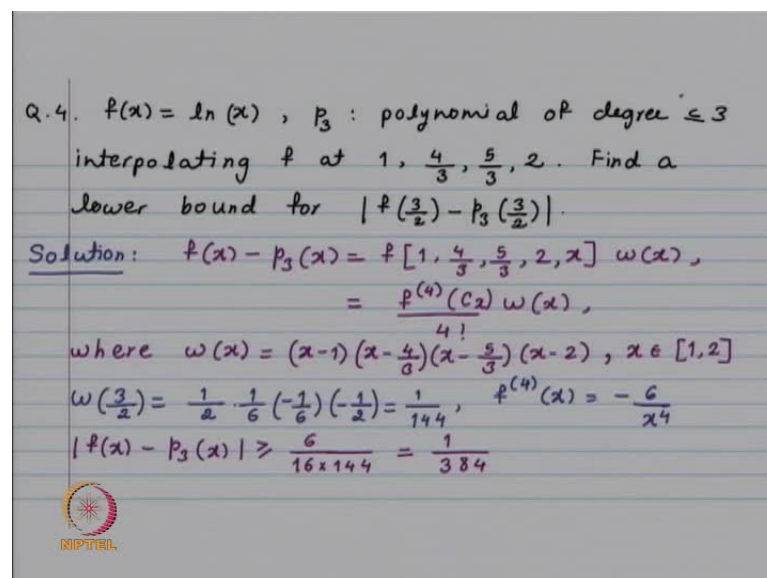 Q.4. f(x) = ln(x), p₃ : polynomial of degree ≤ 3
interpolating f at 1, 4/3, 5/3, 2. Find a
lower bound for |f(3/2) - p₃(3/2)|.
Solution: f(x) - p₃(x) = f[1, 4/3, 5/3, 2, x] ω(x),
= f⁽⁴⁾(c_x)/4! ω(x),
where ω(x) = (x-1)(x-4/3)(x-5/3)(x-2), x ∈ [1,2]
ω(3/2) = 1/2 · 1/6 (-1/6)(-1/2) = 1/144, f⁽⁴⁾(x) = -6/x⁴
|f(x) - p₃(x)| ≥ 6/(16×144) = 1/384
NPTEL